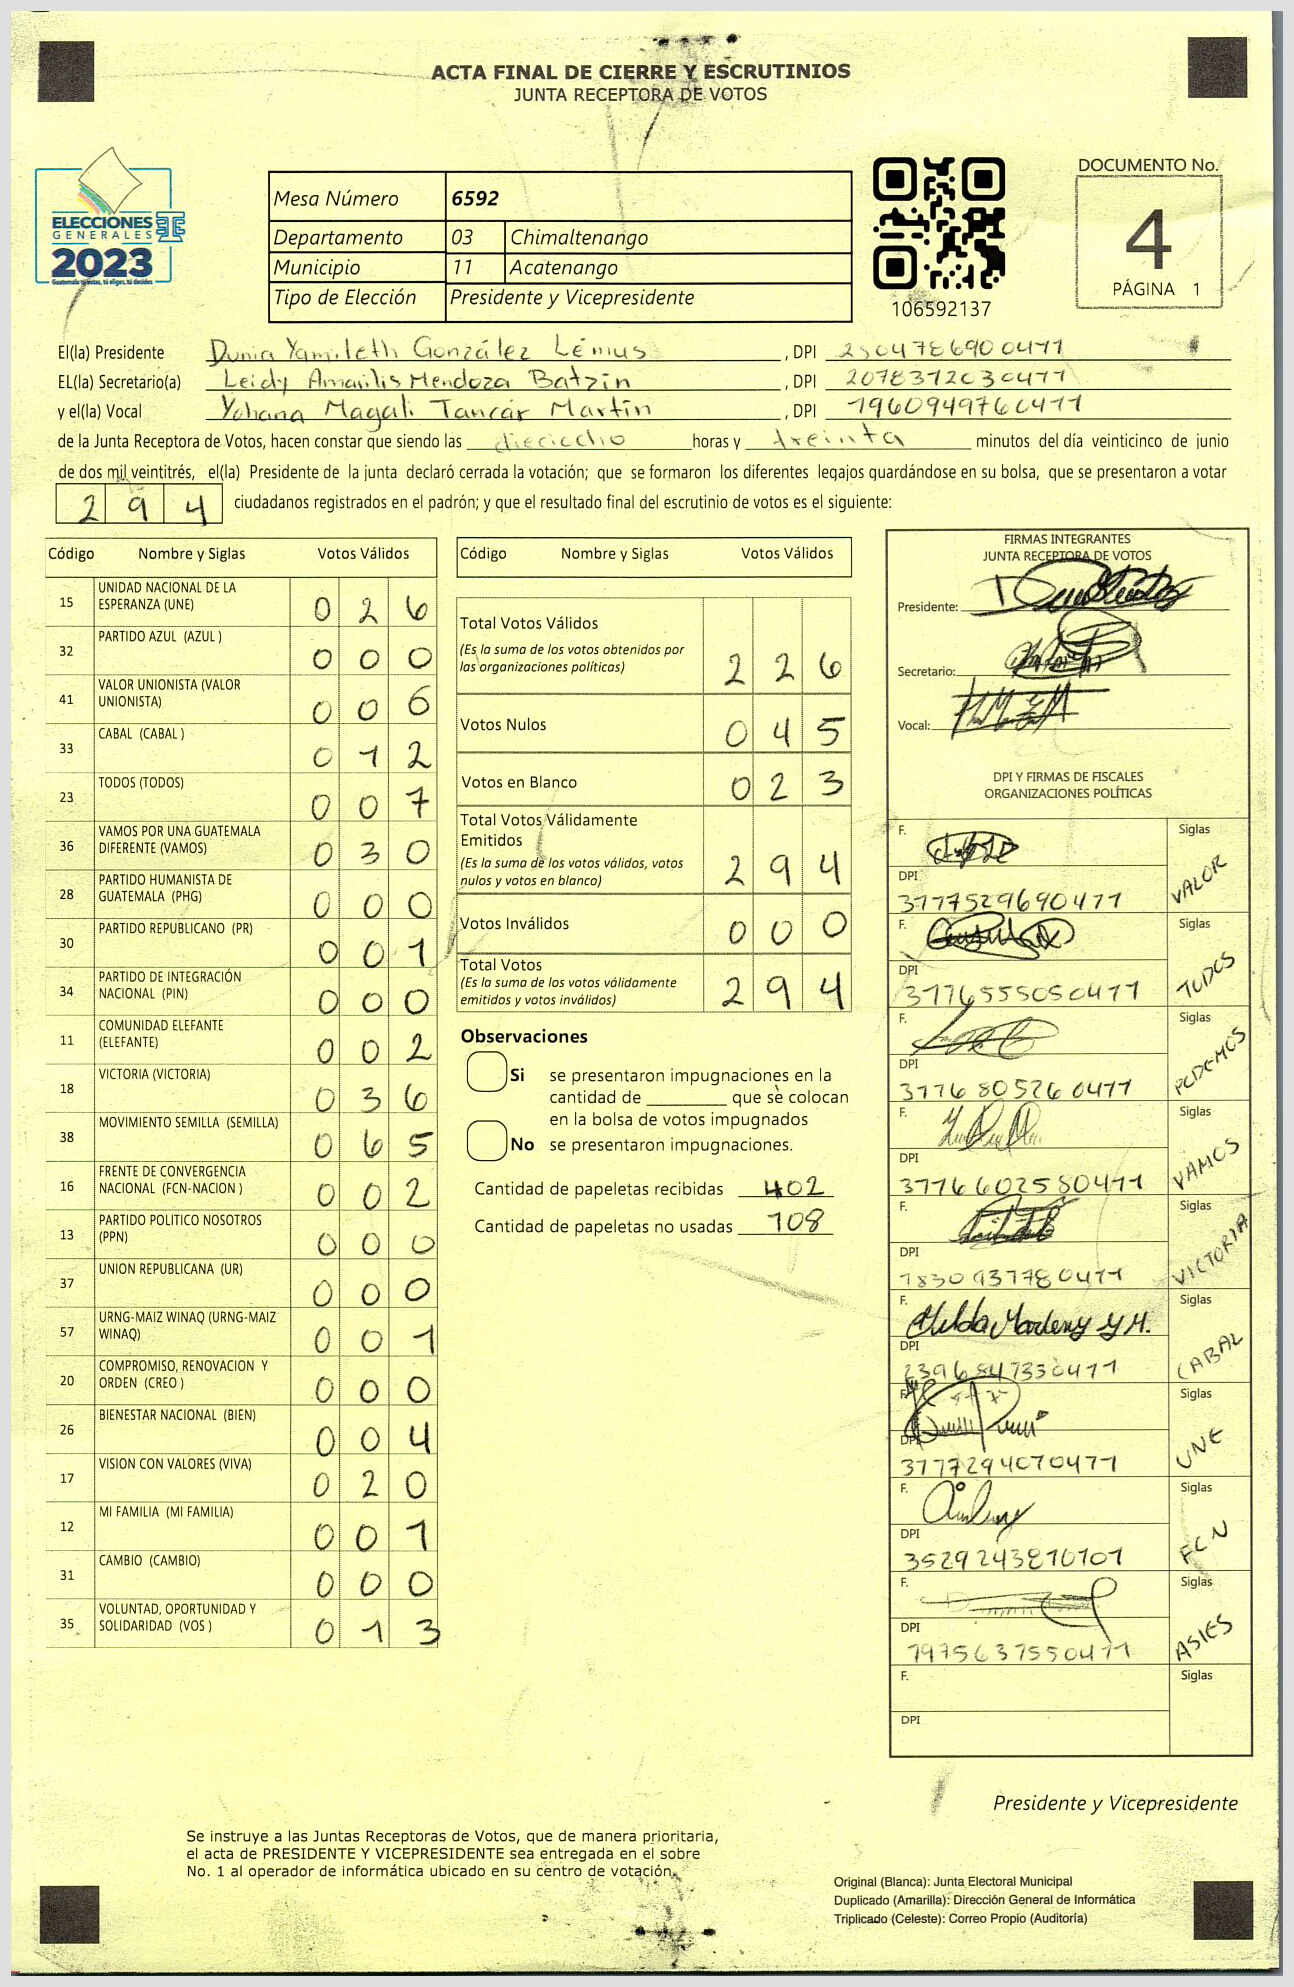 ACTA FINAL DE CIERRE Y ESCRUTINIOS
JUNTA RECEPTORA DE VOTOS
ELECCIONES
GENERALES
2023
Guatemala tú votas, tú eliges, tú decides
Mesa Número 6592
Departamento 03 Chimaltenango
Municipio 11 Acatenango
Tipo de Elección Presidente y Vicepresidente
106592137
DOCUMENTO No.
4
PÁGINA 1
El(la) Presidente Dunia Yamileth González Lémus, DPI 2504786900411
EL(la) Secretario(a) Leidy Amarilis Mendoza Batzin, DPI 2078372030411
y el(la) Vocal Yohana Magali Tancár Martín, DPI 1960949760411
de la Junta Receptora de Votos, hacen constar que siendo las dieciocho horas y treinta minutos del día veinticinco de junio
de dos mil veintitrés, el(la) Presidente de la junta declaró cerrada la votación; que se formaron los diferentes legajos guardándose en su bolsa, que se presentaron a votar
294 ciudadanos registrados en el padrón; y que el resultado final del escrutinio de votos es el siguiente:
Código Nombre y Siglas Votos Válidos
15 UNIDAD NACIONAL DE LA ESPERANZA (UNE) 026
32 PARTIDO AZUL (AZUL ) 000
41 VALOR UNIONISTA (VALOR UNIONISTA) 006
33 CABAL (CABAL ) 012
23 TODOS (TODOS) 007
36 VAMOS POR UNA GUATEMALA DIFERENTE (VAMOS) 030
28 PARTIDO HUMANISTA DE GUATEMALA (PHG) 000
30 PARTIDO REPUBLICANO (PR) 001
34 PARTIDO DE INTEGRACIÓN NACIONAL (PIN) 000
11 COMUNIDAD ELEFANTE (ELEFANTE) 002
18 VICTORIA (VICTORIA) 036
38 MOVIMIENTO SEMILLA (SEMILLA) 065
16 FRENTE DE CONVERGENCIA NACIONAL (FCN-NACION ) 002
13 PARTIDO POLITICO NOSOTROS (PPN) 000
37 UNION REPUBLICANA (UR) 000
57 URNG-MAIZ WINAQ (URNG-MAIZ WINAQ) 001
20 COMPROMISO, RENOVACION Y ORDEN (CREO ) 000
26 BIENESTAR NACIONAL (BIEN) 004
17 VISION CON VALORES (VIVA) 020
12 MI FAMILIA (MI FAMILIA) 001
31 CAMBIO (CAMBIO) 000
35 VOLUNTAD, OPORTUNIDAD Y SOLIDARIDAD (VOS ) 013
Código Nombre y Siglas Votos Válidos
Total Votos Válidos
(Es la suma de los votos obtenidos por
las organizaciones políticas) 226
Votos Nulos 045
Votos en Blanco 023
Total Votos Válidamente
Emitidos
(Es la suma de los votos válidos, votos
nulos y votos en blanco) 294
Votos Inválidos 000
Total Votos
(Es la suma de los votos válidamente
emitidos y votos inválidos) 294
Observaciones
Si se presentaron impugnaciones en la
cantidad de ________ que se colocan
en la bolsa de votos impugnados
No se presentaron impugnaciones.
Cantidad de papeletas recibidas 402
Cantidad de papeletas no usadas 108
FIRMAS INTEGRANTES
JUNTA RECEPTORA DE VOTOS
Presidente:
Secretario:
Vocal:
DPI Y FIRMAS DE FISCALES
ORGANIZACIONES POLÍTICAS
F. Siglas VALOR
DPI 3777529690411
F. Siglas TODOS
DPI 3776555050411
F. Siglas PODEMOS
DPI 3776805260411
F. Siglas VAMOS
DPI 3776602580411
F. Siglas VICTORIA
DPI 1830937780411
F. Hilda Marleny Y M. Siglas CABAL
DPI 2396847330411
F. Siglas UNE
DPI 3777294070411
F. Siglas FCN
DPI 3529243870101
F. Siglas ASIES
DPI 1975637550411
F. Siglas
DPI
Presidente y Vicepresidente
Se instruye a las Juntas Receptoras de Votos, que de manera prioritaria,
el acta de PRESIDENTE Y VICEPRESIDENTE sea entregada en el sobre
No. 1 al operador de informática ubicado en su centro de votación.
Original (Blanca): Junta Electoral Municipal
Duplicado (Amarilla): Dirección General de Informática
Triplicado (Celeste): Correo Propio (Auditoría)